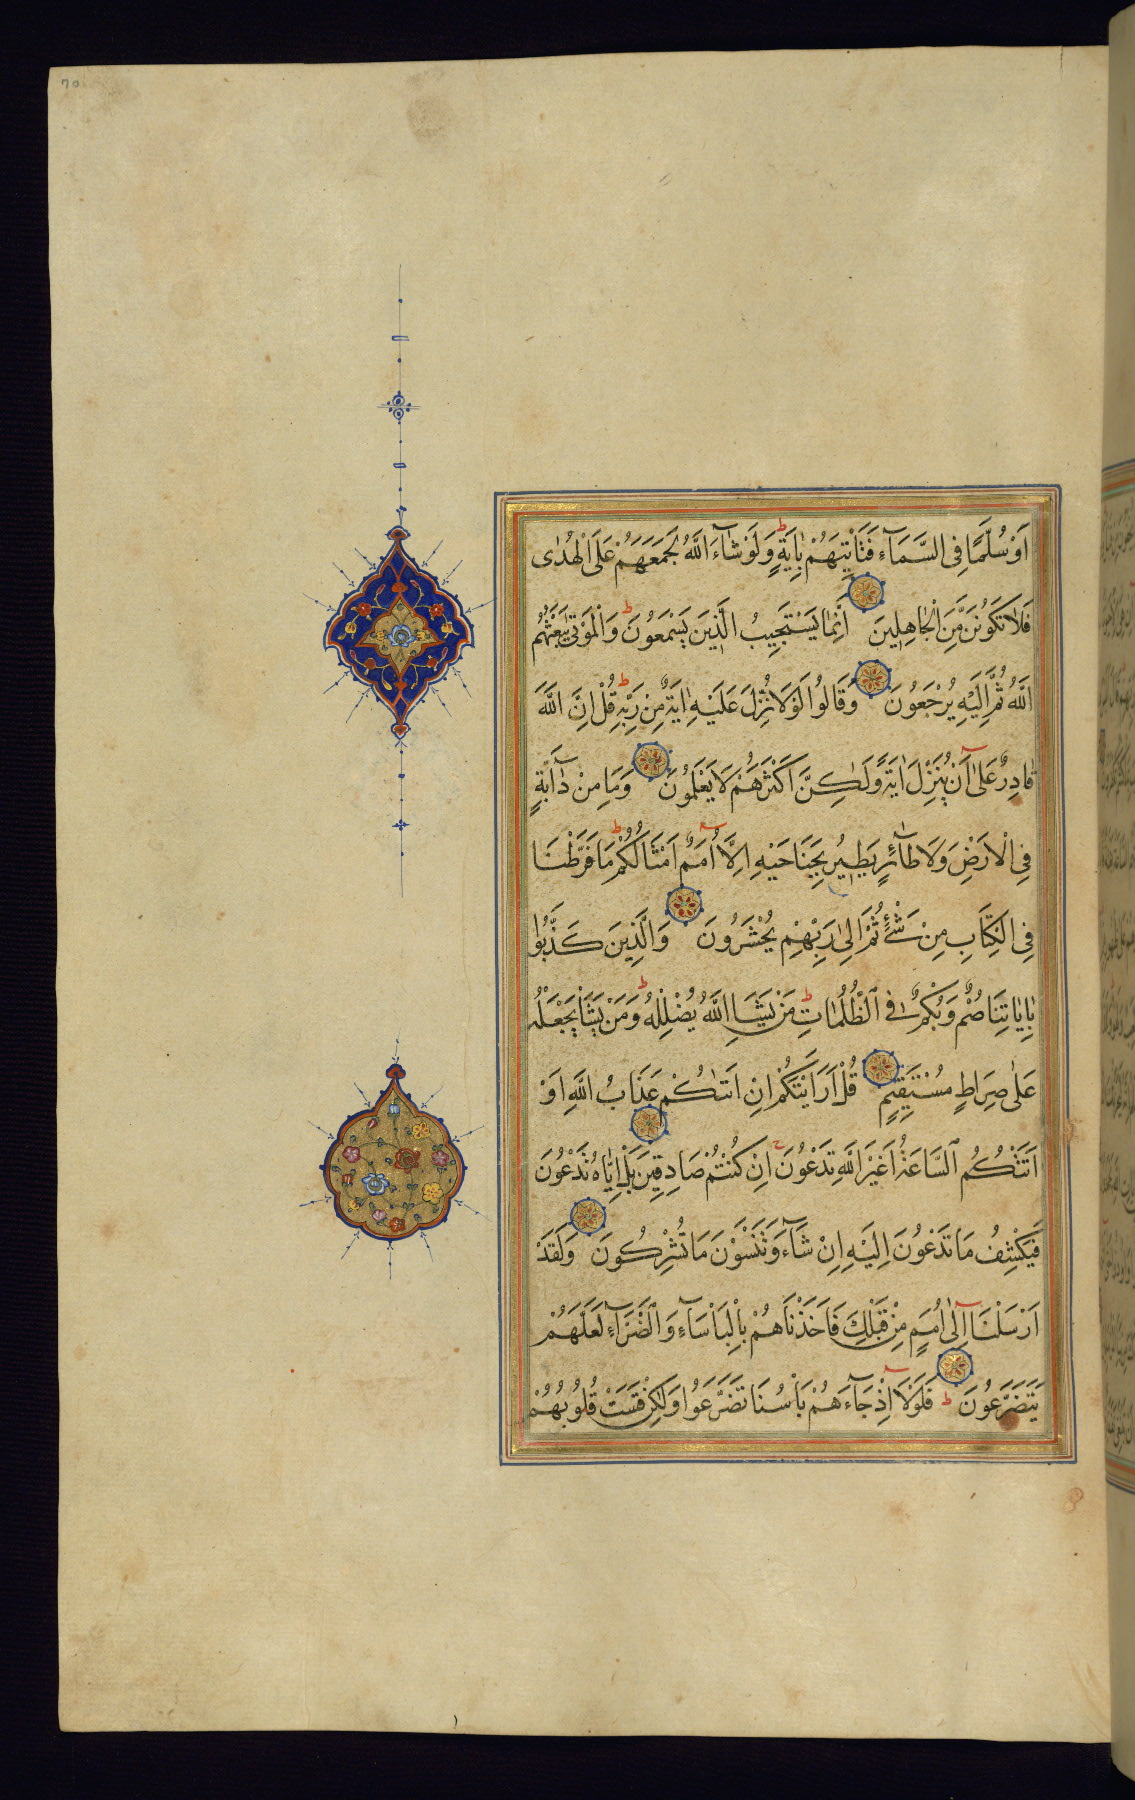 اَوْ سُلَّمًا فِى السَّمَآءِ فَتَاْتِيَهُمْ بِاٰيَةٍ ط وَلَوْ شَآءَ اللّٰهُ لَجَمَعَهُمْ عَلَى الْهُدٰى
فَلَا تَكُونَنَّ مِنَ الْجَاهِلِينَ اِنَّمَا يَسْتَجِيبُ الَّذِينَ يَسْمَعُونَ ط وَالْمَوْتٰى يَبْعَثُهُمُ
اللّٰهُ ثُمَّ اِلَيْهِ يُرْجَعُونَ وَقَالُوا لَوْلَا نُزِّلَ عَلَيْهِ اٰيَةٌ مِنْ رَبِّهِ ط قُلْ اِنَّ اللّٰهَ
قَادِرٌ عَلٰى اَنْ يُنَزِّلَ اٰيَةً وَلٰكِنَّ اَكْثَرَهُمْ لَا يَعْلَمُونَ وَمَا مِنْ دَآبَّةٍ
فِى الْاَرْضِ وَلَا طَآئِرٍ يَطِيرُ بِجَنَاحَيْهِ اِلَّا اُمَمٌ اَمْثَالُكُمْ ط مَا فَرَّطْنَا
فِى الْكِتَابِ مِنْ شَىْءٍ ثُمَّ اِلٰى رَبِّهِمْ يُحْشَرُونَ وَالَّذِينَ كَذَّبُوا
بِاٰيَاتِنَا صُمٌّ وَبُكْمٌ فِى الظُّلُمَاتِ ط مَنْ يَشَاِ اللّٰهُ يُضْلِلْهُ ط وَمَنْ يَشَاْ يَجْعَلْهُ
عَلٰى صِرَاطٍ مُسْتَقِيمٍ قُلْ اَرَاَيْتَكُمْ اِنْ اَتٰىكُمْ عَذَابُ اللّٰهِ اَوْ
اَتَتْكُمُ السَّاعَةُ اَغَيْرَ اللّٰهِ تَدْعُونَ ج اِنْ كُنْتُمْ صَادِقِينَ بَلْ اِيَّاهُ تَدْعُونَ
فَيَكْشِفُ مَا تَدْعُونَ اِلَيْهِ اِنْ شَآءَ وَتَنْسَوْنَ مَا تُشْرِكُونَ وَلَقَدْ
اَرْسَلْنَا اِلٰى اُمَمٍ مِنْ قَبْلِكَ فَاَخَذْنَاهُمْ بِالْبَاْسَآءِ وَالضَّرَّآءِ لَعَلَّهُمْ
يَتَضَرَّعُونَ ط فَلَوْلَا اِذْ جَآءَهُمْ بَاْسُنَا تَضَرَّعُوا وَلٰكِنْ قَسَتْ قُلُوبُهُمْ